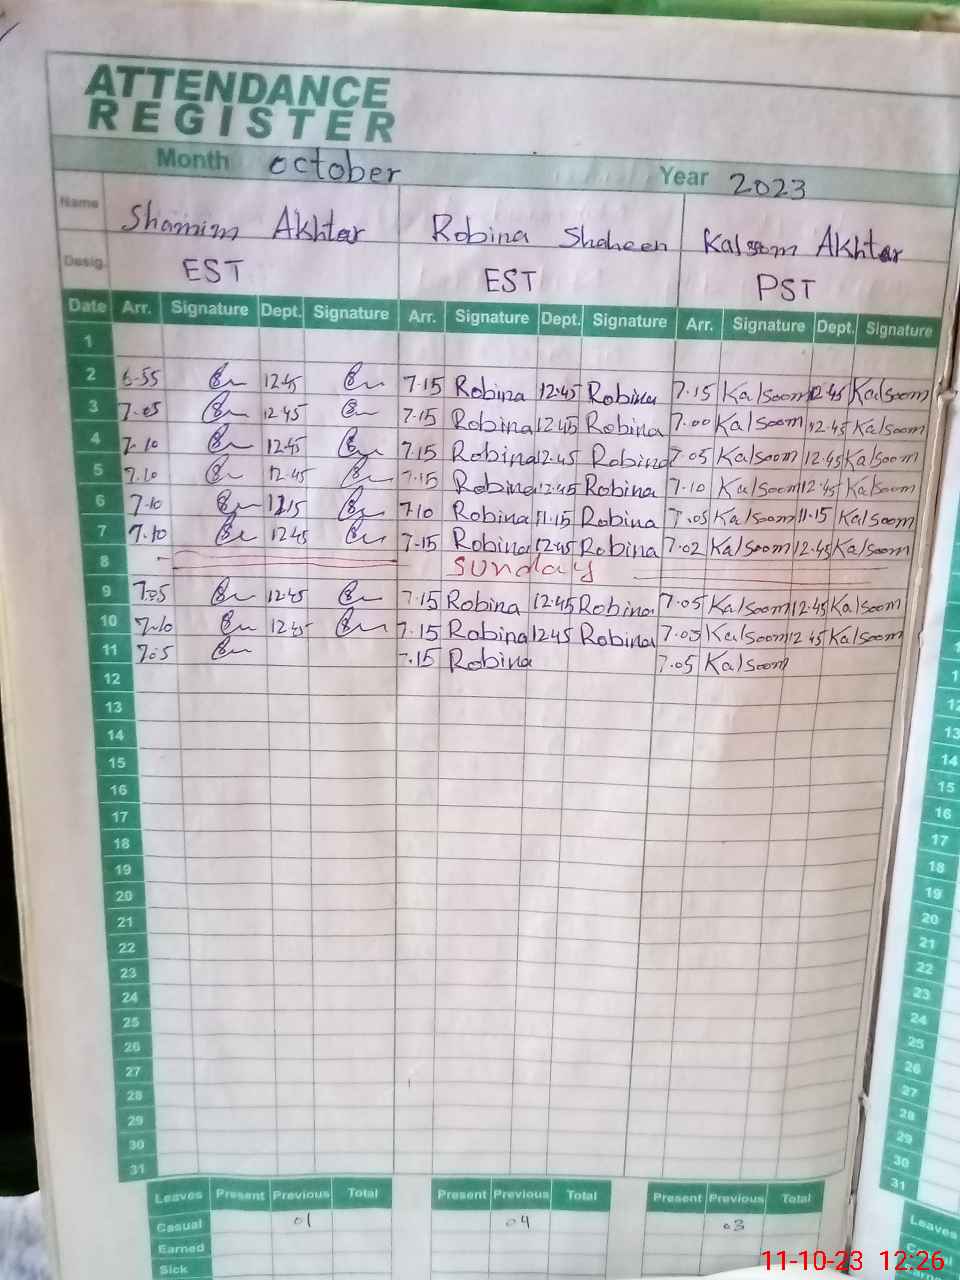 ATTENDANCE
REGISTER
Month october Year 2023
Name Shamim Akhtar Robina Shaheen Kalsoom Akhtar
Desig. EST EST PST
Date Arr. Signature Dept. Signature Arr. Signature Dept. Signature Arr. Signature Dept. Signature
1
2 6-55 12.45 7.15 Robina 12.45 Robina 7.15 Kalsoom 12.45 Kalsoom
3 7.05 12.45 7.15 Robina 12.45 Robina 7.00 Kalsoom 12.45 Kalsoom
4 7.10 12.45 7.15 Robina 12.45 Robina 7.05 Kalsoom 12.45 Kalsoom
5 7.10 12.45 7.15 Robina 12.45 Robina 7.10 Kalsoom 12.45 Kalsoom
6 7.10 7.10 Robina 11.15 Robina 7.05 Kalsoom 11.15 Kalsoom
7 7.10 12.45 7.15 Robina 12.45 Robina 7.02 Kalsoom 12.45 Kalsoom
8 Sunday
9 7.05 12.45 7.15 Robina 12.45 Robina 7.05 Kalsoom 12.45 Kalsoom
10 7.10 12.45 7.15 Robina 12.45 Robina 7.05 Kalsoom 12.45 Kalsoom
11 7.05 7.15 Robina 7.05 Kalsoom
12
13
14
15
16
17
18
19
20
21
22
23
24
25
26
27
28
29
30
31
Leaves Present Previous Total Present Previous Total Present Previous Total
Casual 01 04 03
Earned
Sick
12
13
14
15
16
17
18
19
20
21
22
23
24
25
26
27
28
29
30
31
Leaves
11-10-23 12:26